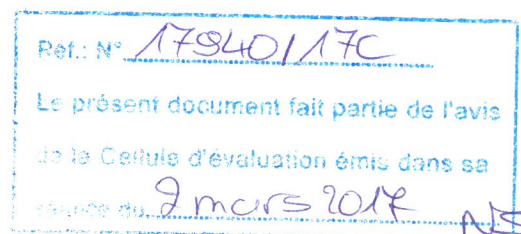 Réf.: N° 17940/17C
Le présent document fait partie de l'avis
de la Cellule d'évaluation émis dans sa
séance du 2 mars 2017